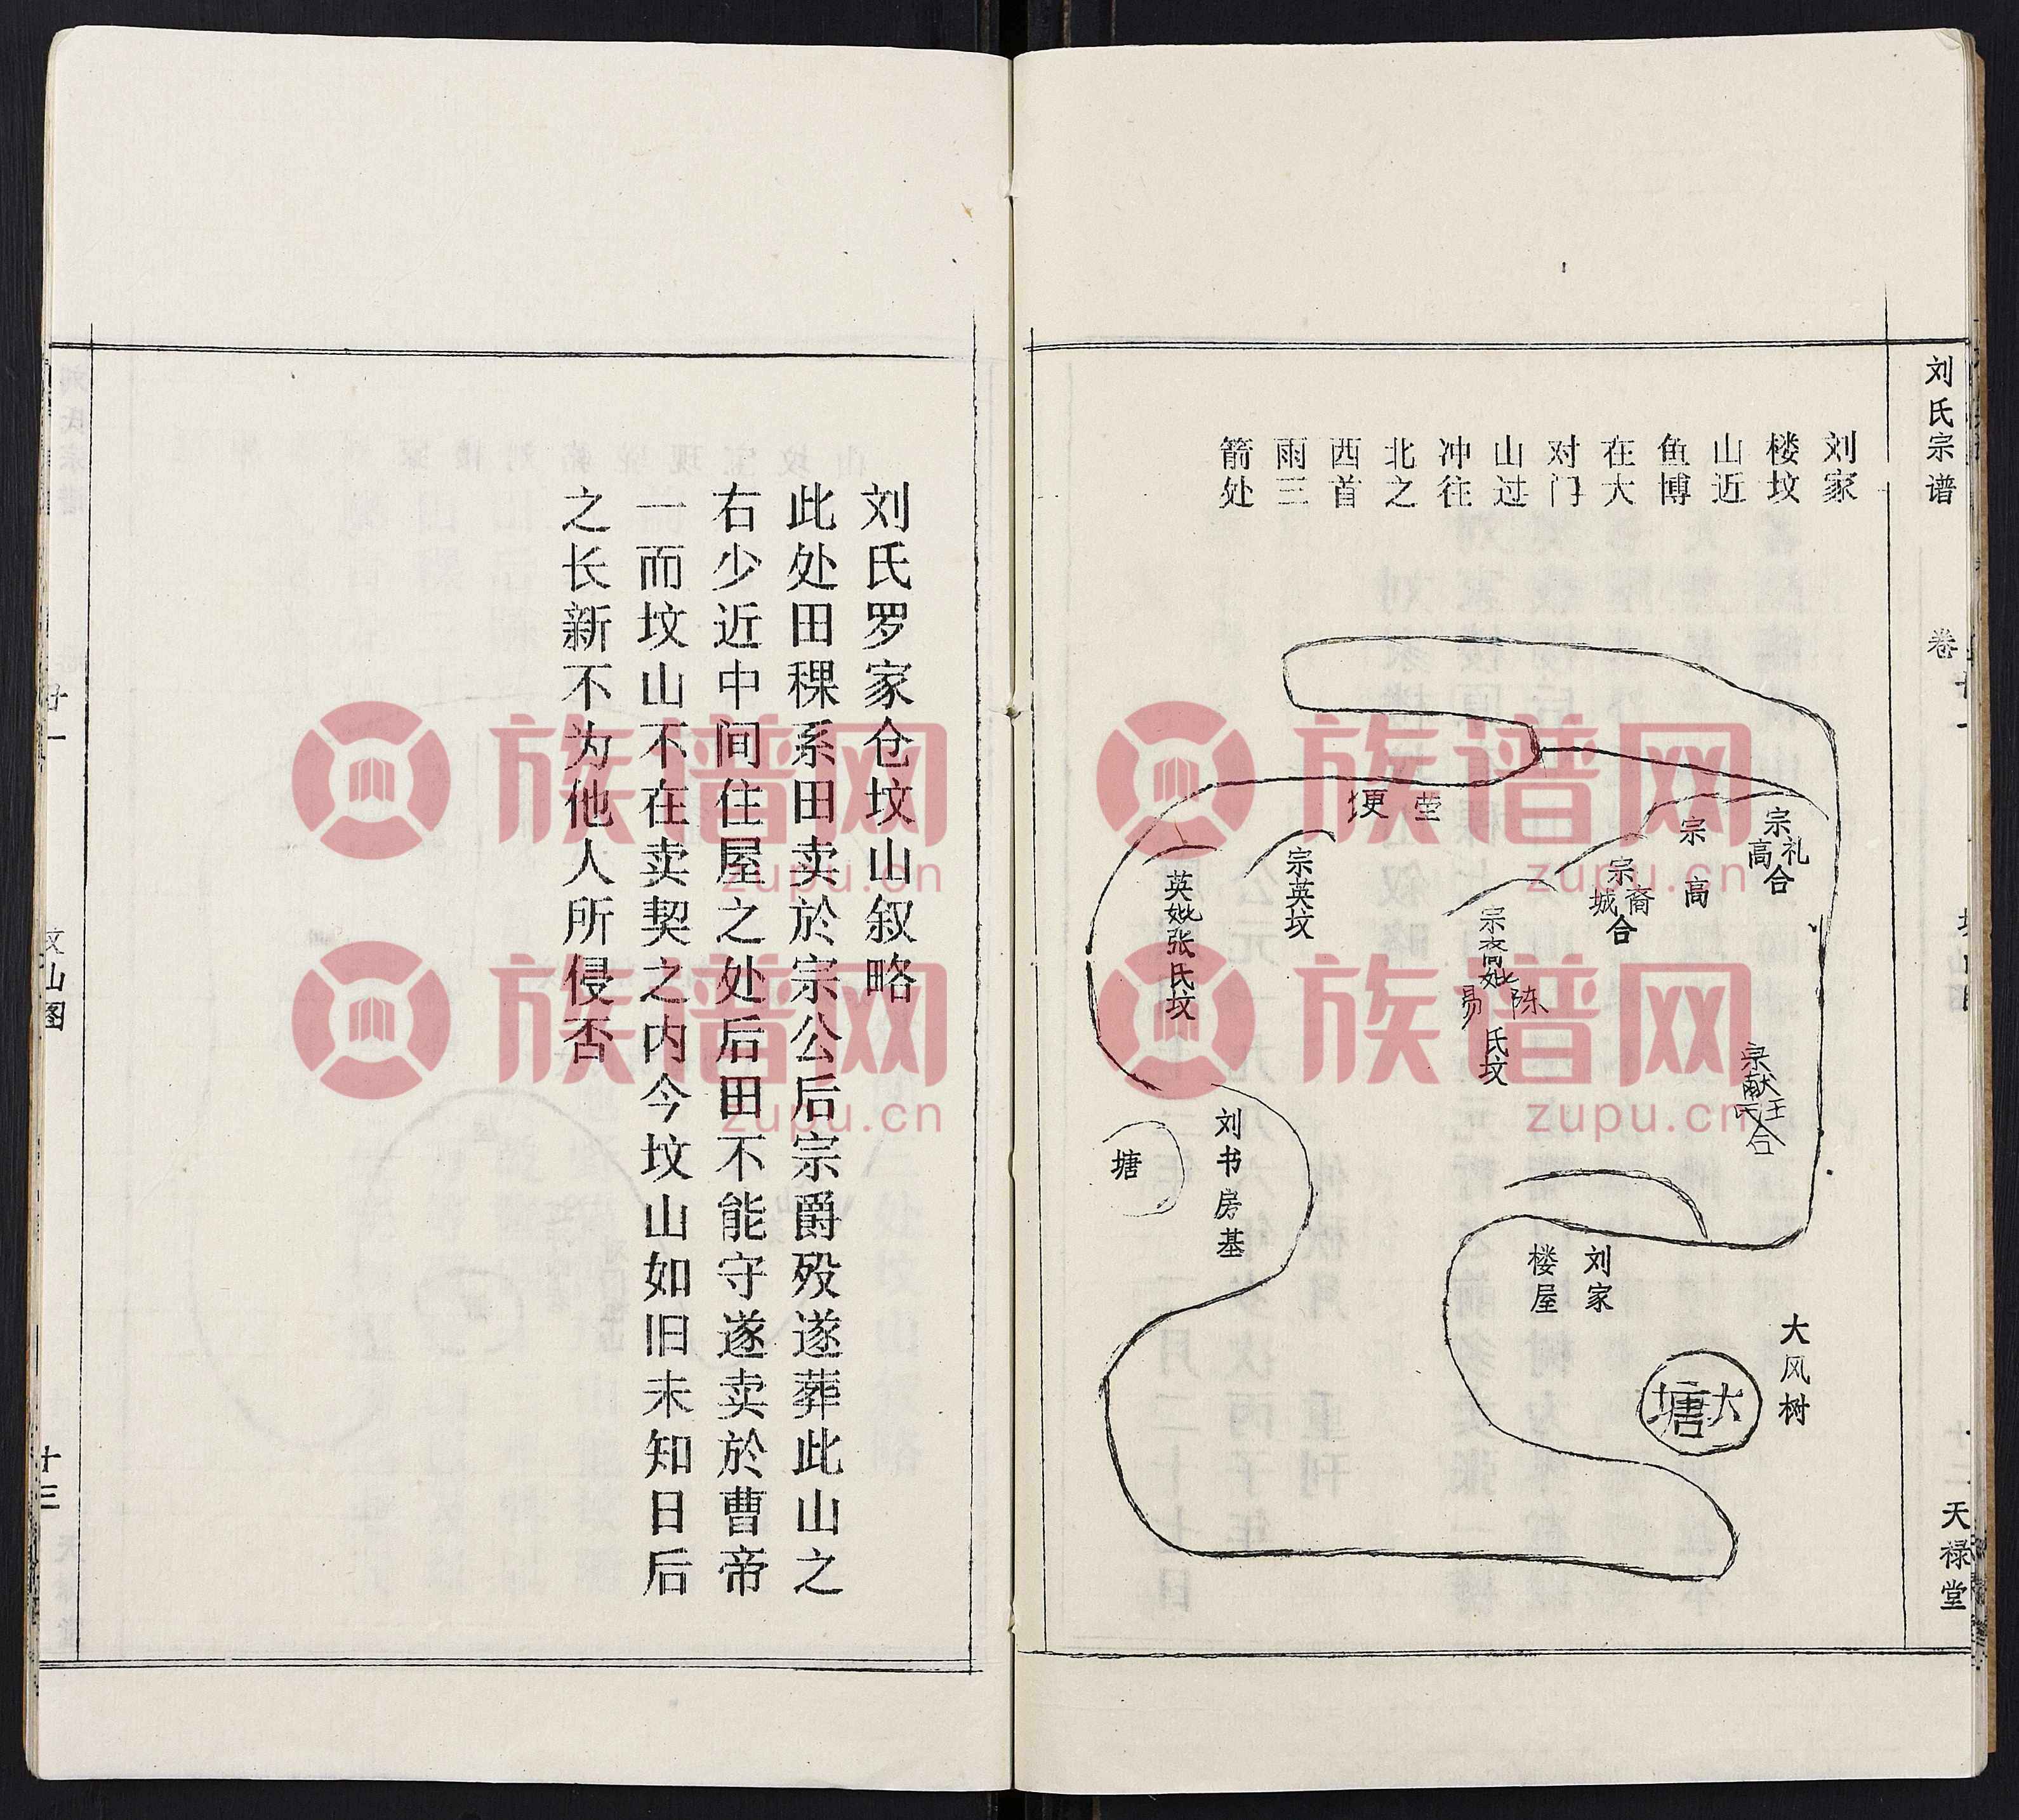 刘氏宗谱
卷廿一
天禄堂
刘家
楼坟
山近
鱼博
在大
对门
山过
冲往
北之
西首
雨三
箭处
宗礼
高合
宗高
宗裔
城合
宗裔妣
陈
易
氏坟
宗献王
氏合
茔
埂
宗英坟
英妣张氏坟
刘书房基
塘
刘家
楼屋
大风树
大塘
刘氏罗家仓坟山叙略
此处田稞系田卖於宗公后宗爵殁遂葬此山之
右少近中间住屋之处后田不能守遂卖於曹帝
一而坟山不在卖契之内今坟山如旧未知日后
之长新不为他人所侵否
廿一
坟山图
十三
族谱网
zupu.cn
族谱网
zupu.cn
族谱网
zupu.cn
族谱网
zupu.cn